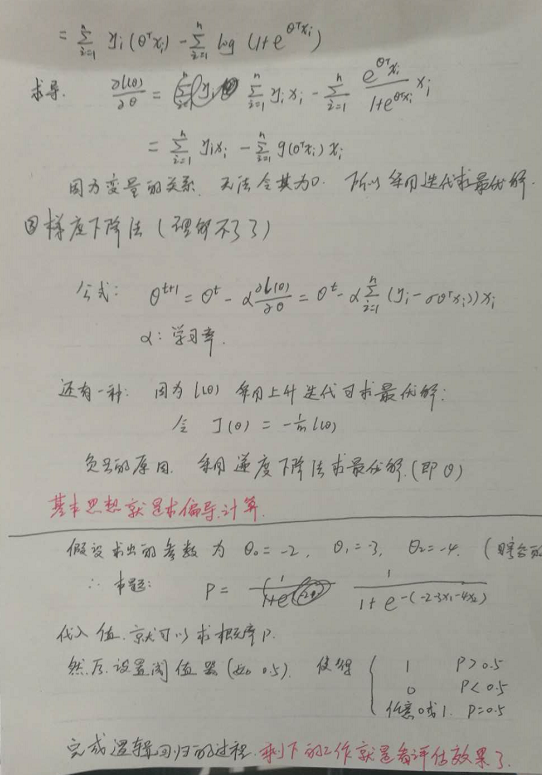 = Σ_{i=1}^{n} y_i(θ^T x_i) - Σ_{i=1}^{n} log (1+e^{θ^T x_i})
求导. ∂l(θ)/∂θ = Σ_{i=1}^{n} y_i x_i - Σ_{i=1}^{n} e^{θ^T x_i}/(1+e^{θ^T x_i}) x_i
= Σ_{i=1}^{n} y_i x_i - Σ_{i=1}^{n} g(θ^T x_i) x_i
因为变量的关系, 无法令其为0. 所以采用迭代求最优解.
梯度下降法 (理解不了了)
公式: θ^{t+1} = θ^t - α ∂l(θ)/∂θ = θ^t - α Σ_{i=1}^{n} (y_i - σθ^T x_i)) x_i
α: 学习率.
还有一种: 因为 l(θ) 采用上升迭代可求最优解:
令 J(θ) = -1/m l(θ)
负号的原因. 采用递度下降法求最优解. (即 θ)
基本思想就是求偏导.计算.
假设求出的参数为 θ₀=-2, θ₁=-3, θ₂=-4. (瞎
∴ P = 1/(1+e^{-(-2-3x₁-4x₂)})
代入值. 就可以求概率 P.
然后. 设置阈值器 (如 0.5). 使得 { 1 P>0.5
0 P<0.5
任意0或1. P=0.5
完成逻辑回归的过程. 剩下的工作就是看评估效果了.